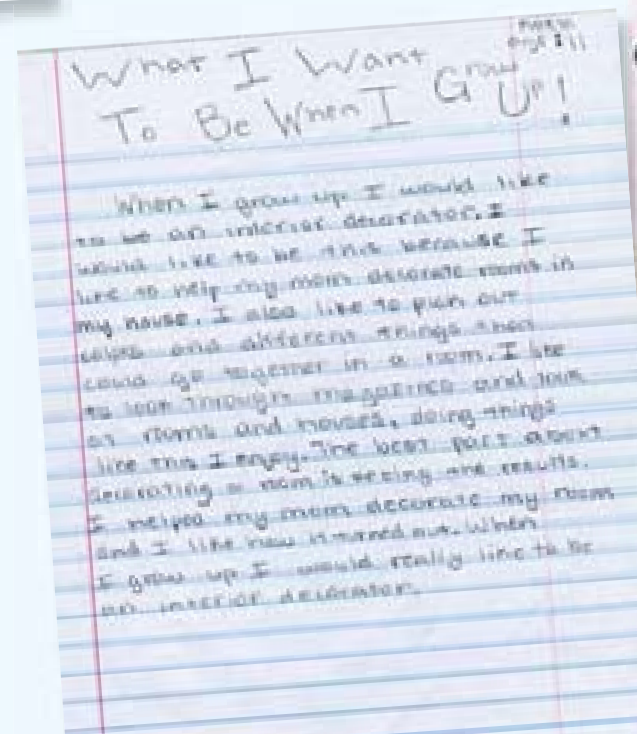 What I Want
To Be When I Grow Up!
When I grow up I would like
to be an interior decorator. I
would like to be this because I
like to help my mom decorate rooms in
my house. I also like to pick out
colors and different things that
could go together in a room. I like
to look through magazines and look
at rooms and houses, doing things
like this I enjoy. The best part about
decorating a room is seeing the results.
I helped my mom decorate my room
and I like how it turned out. When
I grow up I would really like to be
an interior decorator.